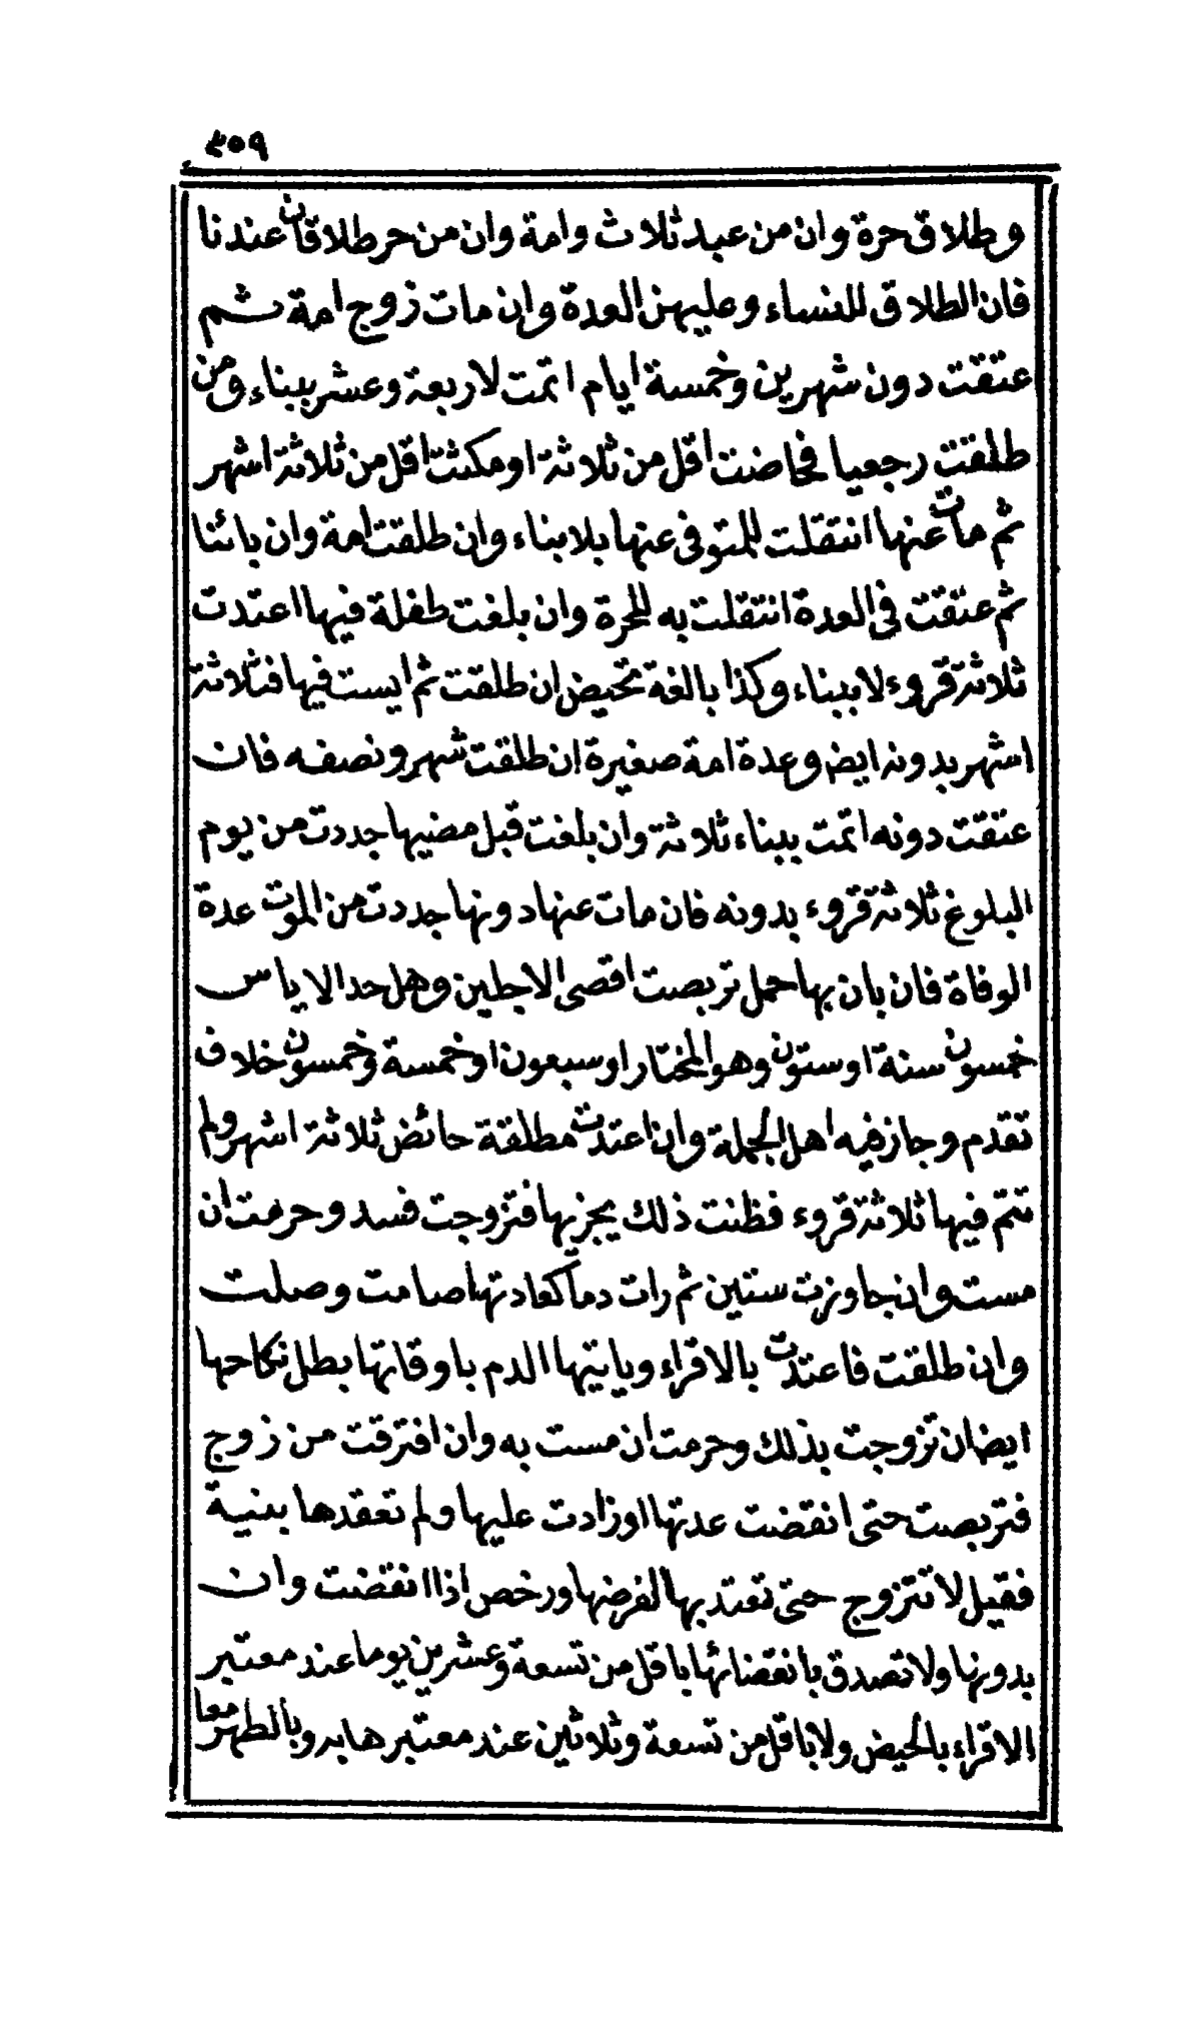 ٣٥٩
وطلاق حرة وان من عبد ثلاث وامة وان من حر طلاقان عندنا
فان الطلاق للنساء وعليهن العدة وان مات زوج امة ثم
عتقت دون شهرين وخمسة ايام اتمت لاربعة وعشر ببناء ومن
طلقت رجعيا فحاضت اقل من ثلاثة او مكثت اقل من ثلاثة اشهر
ثم مات عنها انتقلت للمتوفى عنها بلا بناء وان طلقت امة وان بائنا
ثم عتقت في العدة انتقلت به للحرة وان بلغت طفلة فيها اعتدت
ثلاثة قروء لا ببناء وكذا بالغة تحيض ان طلقت ثم ايست فيها فثلاثة
اشهر بدونه ايض وعدة امة صغيرة ان طلقت شهر ونصفه فان
عتقت دونه اتمت ببناء ثلاثة وان بلغت قبل مضيها جددت من يوم
البلوغ ثلاثة قروء بدونه فان مات عنها دونها جددت من الموت عدة
الوفاة فان بان بها حمل تربصت اقصى الاجلين وهل حد الاياس
خمسون سنة او ستون وهو المختار او سبعون او خمسة وخمسون خلاف
تقدم وجاز فيه اهل الجملة وان اعتدت مطلقة حائض ثلاثة اشهر ولم
تتم فيها ثلاثة قروء فظنت ذلك يجزيها فتزوجت فسد وحرمت ان
مست وان جاوزت ستين ثم رات دما كعادتها صامت وصلت
وان طلقت فاعتدت بالاقراء وياتيها الدم باوقاتها بطل نكاحها
ايضا ان تزوجت بذلك وحرمت ان مست به وان افترقت من زوج
فتربصت حتى انقضت عدتها او زادت عليها ولم تعقدها بنية
فقيل لا تتزوج حتى تعتد بها لفرضها ورخص اذا انقضت وان
بدونها ولا تصدق بانقضائها باقل من تسعة وعشرين يوما عند معتبر
الاقراء بالحيض ولا باقل من تسعة وثلاثين عند معتبرها به وبالطهر معا